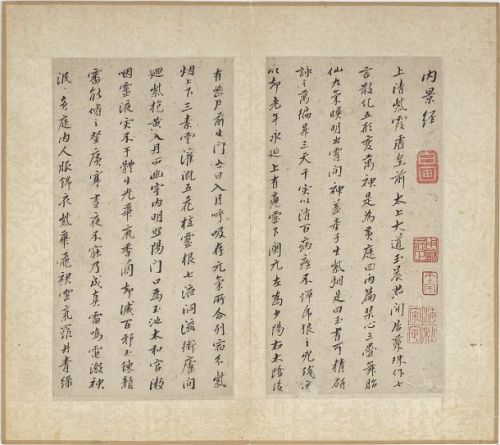 內景經
上清紫霞虛皇前太上大道玉晨君閒居蘂珠作七
言散化五形變萬神是為黃庭曰內篇琴心三疊舞胎
仙九氣映明出霄間神蓋童子生紫烟是曰玉書可精研
詠之萬徧昇三天千灾以消百病痊不憚虎狼之凶殘亦
以却老年永延上有魂靈下關元左為少陽右太陰後
有密戶前生門出日入月呼吸存元氣所合列宿分紫
烟上下三素雲灌溉五花植靈根七液洞流衝廬間
迴紫抱黃入丹田幽室內明照陽門口為玉池太和官漱
咽靈液灾不干體生光華氣香蘭却滅百邪玉鍊顏
審能脩之登廣寒晝夜不寐乃成真雷鳴電激神
泯〻黃庭內人服錦衣紫華飛裙雲氣羅丹青綠